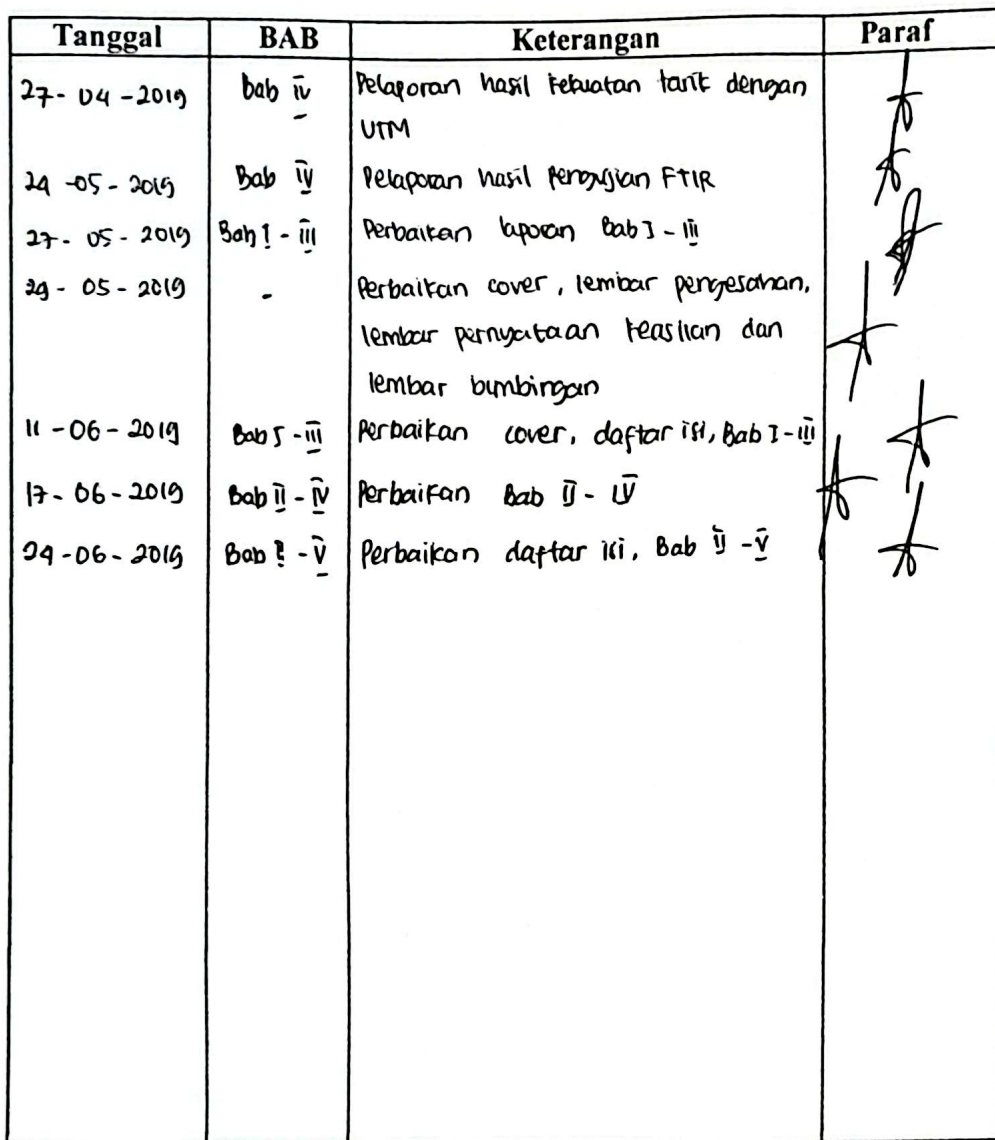 Tanggal BAB Keterangan Paraf
27-04-2019 bab iv Pelaporan hasil kekuatan tarik dengan
UTM
24-05-2019 Bab iv Pelaporan hasil Pengujian FTIR
27-05-2019 Bab I - iii Perbaikan laporan Bab I - iii
29-05-2019 - Perbaikan cover, lembar pengesahan,
lembar pernyataan keaslian dan
lembar bimbingan
11-06-2019 Bab I - iii Perbaikan cover, daftar isi, Bab I - iii
17-06-2019 Bab ii - iv Perbaikan Bab ii - iv
24-06-2019 Bab I - v Perbaikan daftar isi, Bab ii - v